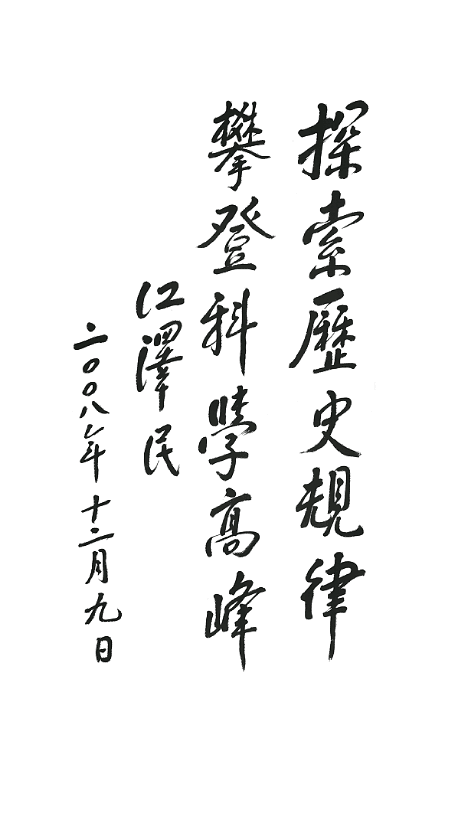 探索歷史規律
攀登科學高峰
江澤民
二〇〇八年十二月九日